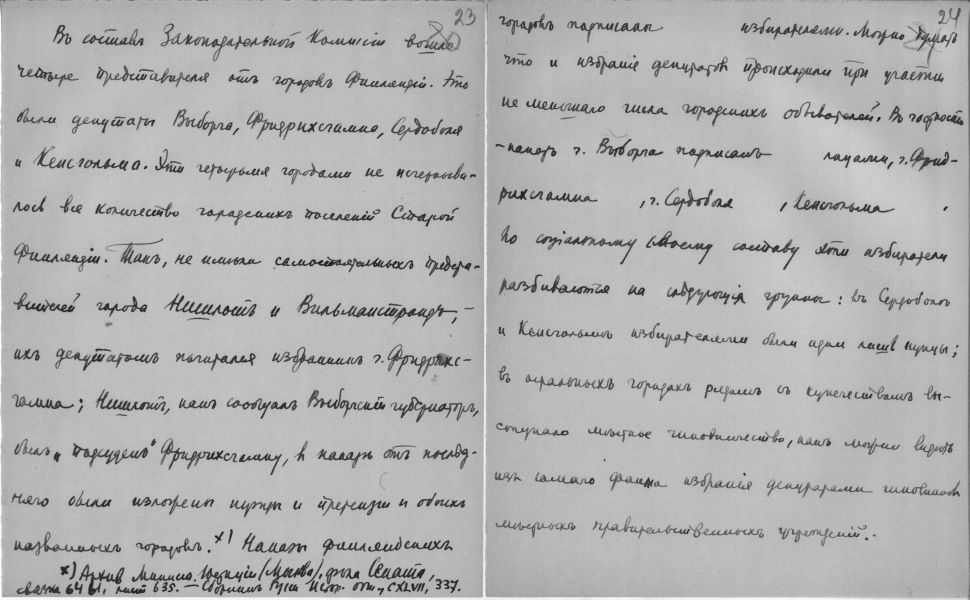 23
Въ составъ Законодательной Комиссіи вошло
четыре представителя отъ городовъ Финляндіи. Это
были депутаты Выборга, Фридрихсгамна, Сердоболя
и Кексгольма. Эти четырьмя городами не исчерпыва-
лось все количество городскихъ поселеній Старой
Финляндіи. Такъ, не имѣли самостоятельныхъ предста-
вителей города Нишлотъ и Вильманстрандъ, –
ихъ депутатомъ считался избранникъ г. Фридрихс-
гамна; Нишлотъ, какъ сообщалъ Выборгскій губернаторъ,
былъ „подсуденъ" Фридрихсгамну, въ наказѣ отъ послѣд-
няго были изложены нужды и претензіи и обоихъ
названныхъ городовъ. х) Наказы финляндскихъ
х) Архив Минист. Юстиціи (Москва), фонд Сената,
связка 64 лист 635. — Сборникъ Русск. Истор. Общ., CXLVII, 337.
24
городовъ подписали избирателями. Можно думать
что и избраніе депутатов происходили при участіи
не меньшаго числа городскихъ обывателей. Въ частности
наказъ г. Выборга подписанъ лицами, г. Фрид-
рихсгамна , г. Сердоболя , Кексгольма .
По соціальному своему составу эти избиратели
разбиваются на слѣдующія группы: въ Сердоболѣ
и Кексгольмѣ избирателями были одни лишь купцы;
въ остальныхъ городахъ рядомъ съ купечествомъ вы-
ступало мѣстное чиновничество, какъ можно видѣть
изъ самаго факта избранія депутатами чиновниковъ
мѣстныхъ правительственныхъ учрежденій.